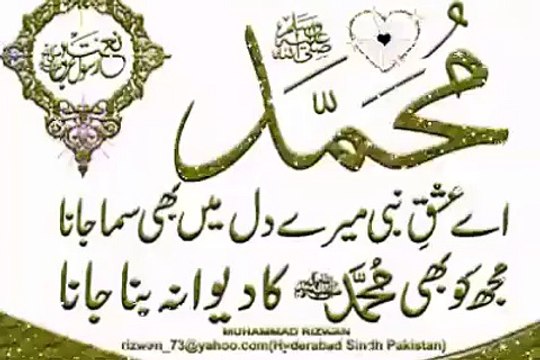 نعت رسول مقبول
محمد ﷺ
اے عشقِ نبی میرے دل میں بھی سما جانا
مجھ کو بھی محمد ﷺ کا دیوانہ بنا جانا
MUHAMMAD RIZWAN
rizwan_73@yahoo.com(Hyderabad Sindh Pakistan)